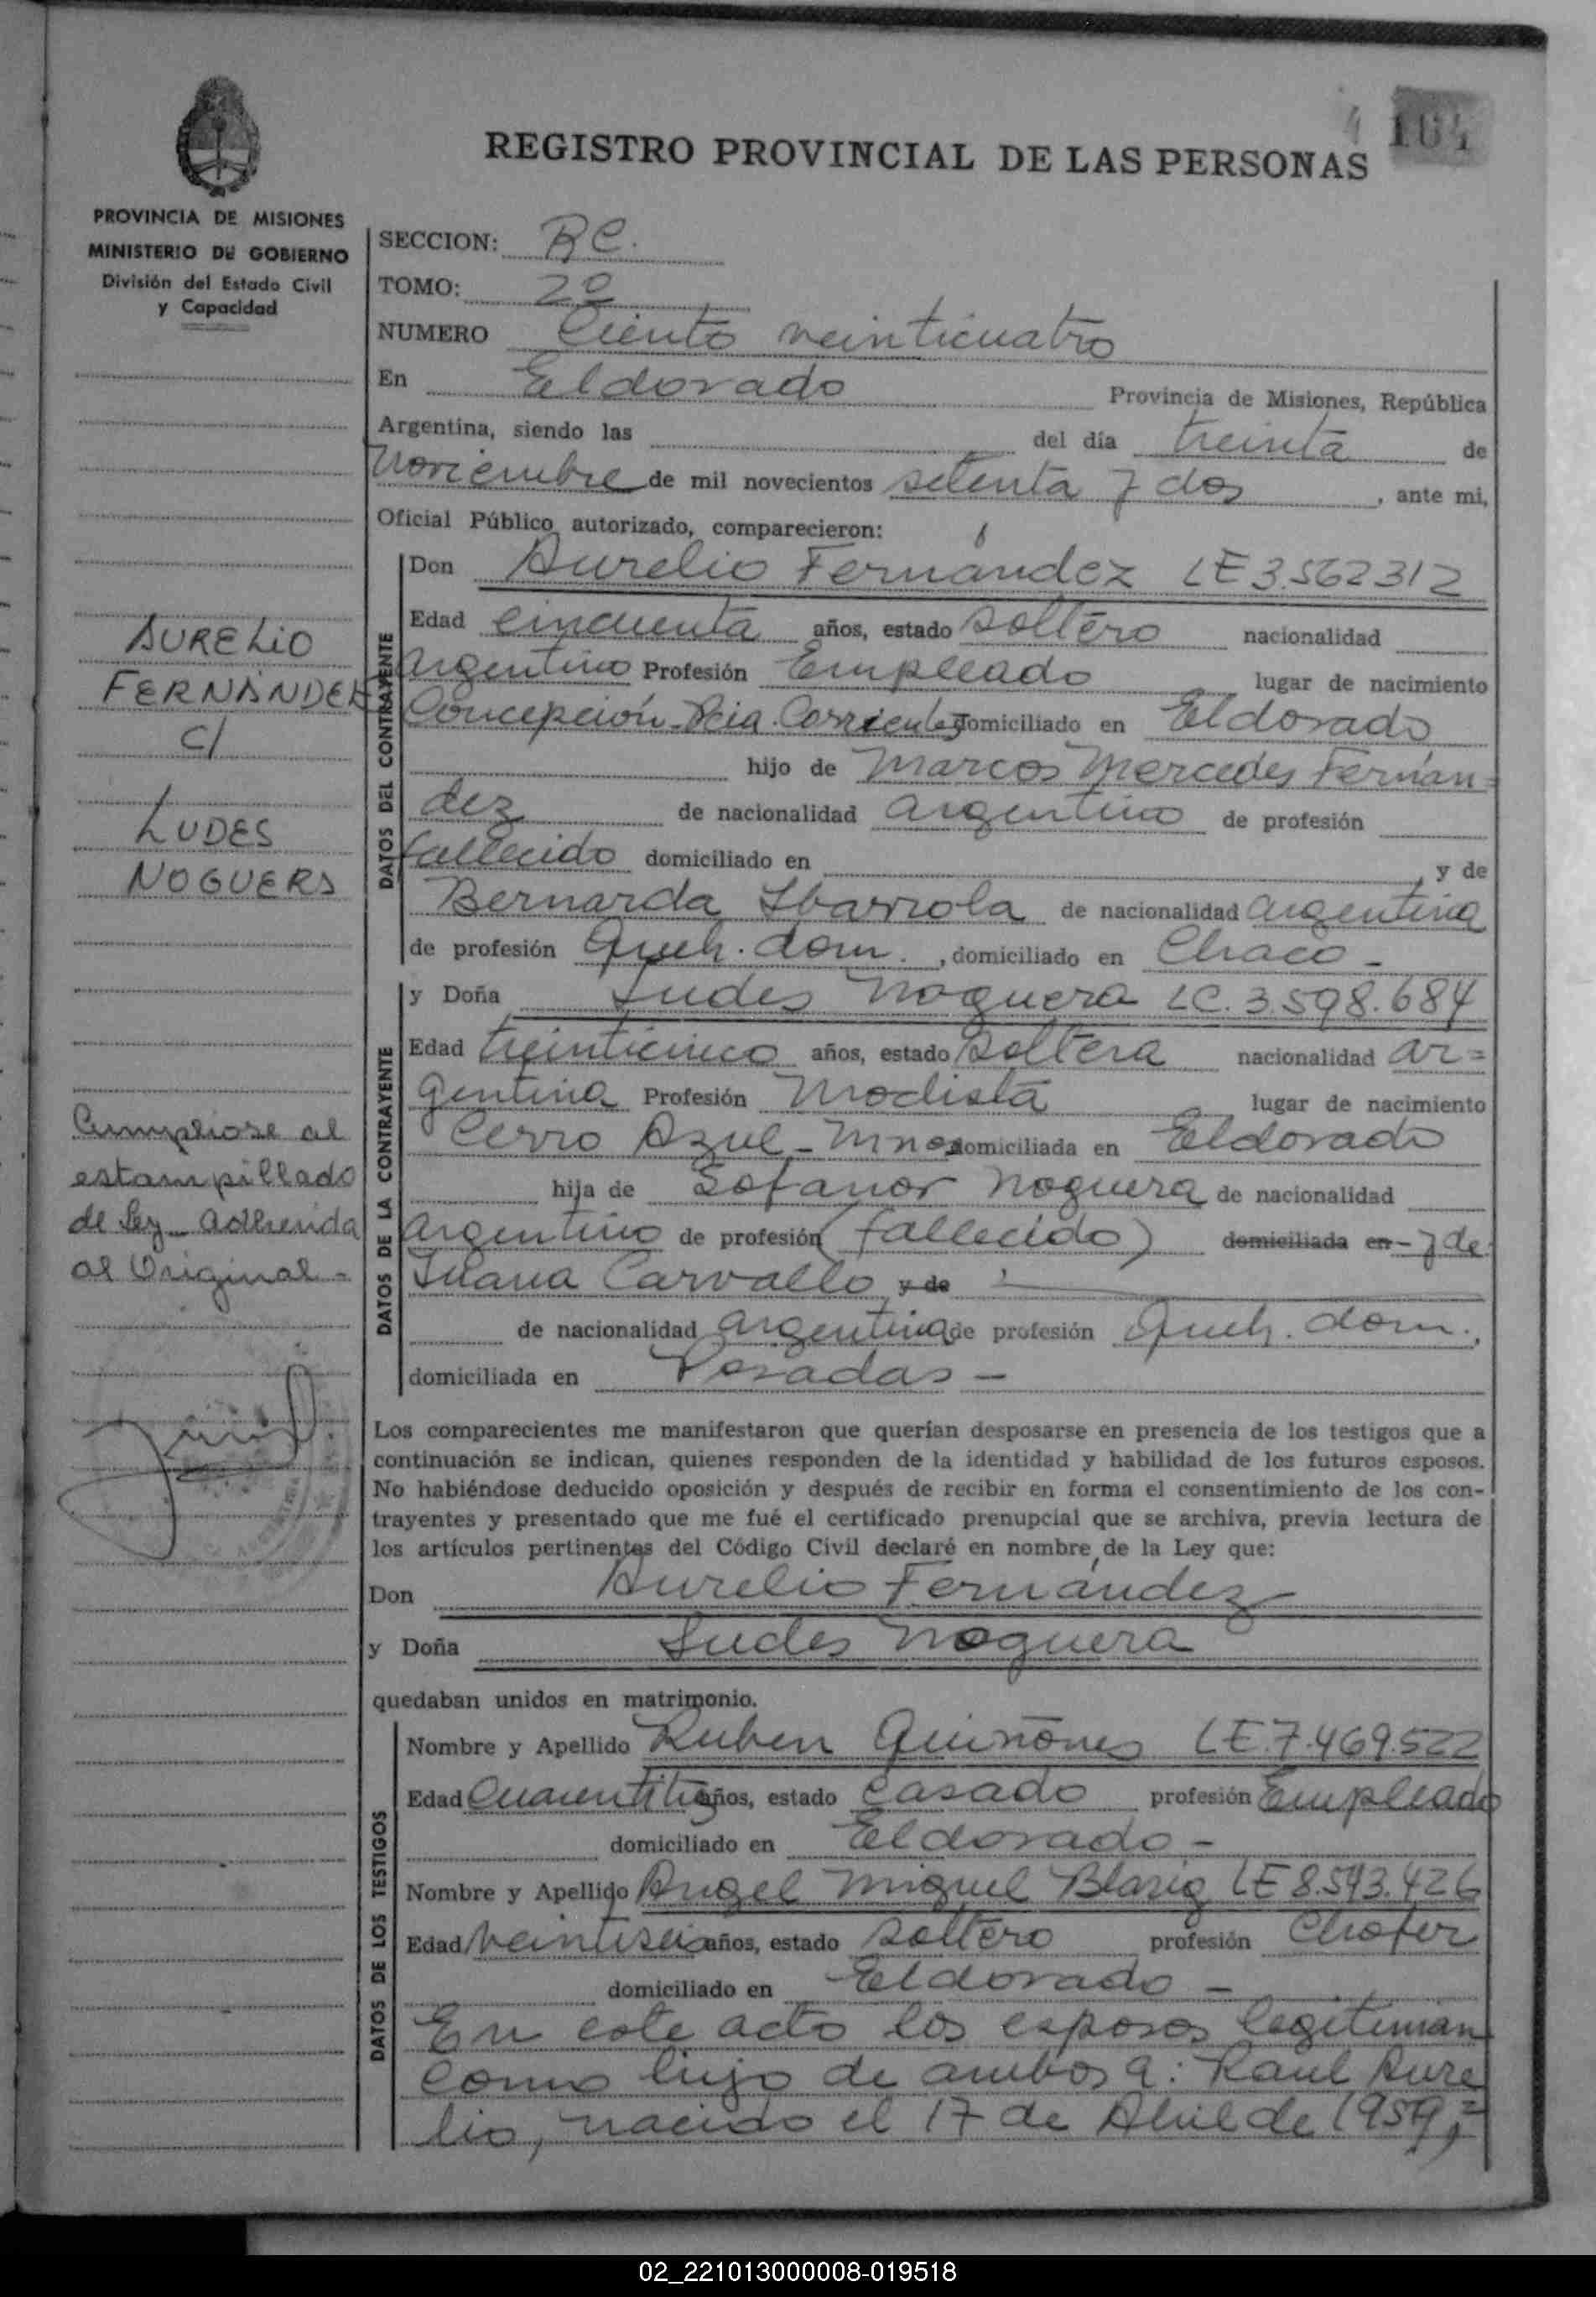 4 164
REGISTRO PROVINCIAL DE LAS PERSONAS
PROVINCIA DE MISIONES
MINISTERIO DE GOBIERNO
División del Estado Civil
y Capacidad
SECCION: RC.
TOMO: 2º
NUMERO Ciento veinticuatro
En Eldorado Provincia de Misiones, República
Argentina, siendo las del día treinta de
Noviembre de mil novecientos setenta y dos, ante mi,
Oficial Público autorizado, comparecieron:
DATOS DEL CONTRAYENTE
Don Aurelio Fernández LE 3.562312
Edad cincuenta años, estado soltero nacionalidad
argentino Profesión Empleado lugar de nacimiento
Concepción Pcia. Corrientes domiciliado en Eldorado
hijo de Marcos Mercedes Fernan=
dez de nacionalidad argentino de profesión
fallecido domiciliado en y de
Bernarda Ibarrola de nacionalidad argentina
de profesión Queh. dom., domiciliado en Chaco -
DATOS DE LA CONTRAYENTE
y Doña Ludes Noguera LC. 3.598.684
Edad treinticinco años, estado soltera nacionalidad ar=
gentina Profesión Modista lugar de nacimiento
Cerro Azul - Mnes domiciliada en Eldorado
hija de Sofanor Noguera de nacionalidad
argentino de profesión (fallecido) domiciliada en - y de
Juana Carvallo y de
de nacionalidad argentina de profesión Queh. dom.,
domiciliada en Posadas -
AURELIO
FERNÁNDEZ
C/
LUDES
NOGUERA
Cumpliose al
estampillado
de Ley adherida
al Original -
Los comparecientes me manifestaron que querían desposarse en presencia de los testigos que a
continuación se indican, quienes responden de la identidad y habilidad de los futuros esposos.
No habiéndose deducido oposición y después de recibir en forma el consentimiento de los con-
trayentes y presentado que me fué el certificado prenupcial que se archiva, previa lectura de
los artículos pertinentes del Código Civil declaré en nombre de la Ley que:
Don Aurelio Fernández
y Doña Ludes Noguera
quedaban unidos en matrimonio.
DATOS DE LOS TESTIGOS
Nombre y Apellido Ruben Quiñones LE.7.469.522
Edad Cuarentitres años, estado casado profesión Empleado
domiciliado en Eldorado -
Nombre y Apellido Angel Miguel LE 8.543.426
Edad Veintiseis años, estado soltero profesión Chofer
domiciliado en Eldorado -
En este acto los esposos legitiman
como hijo de ambos a: Raul Aure
lio, nacido el 17 de Abril de 1959,=
02_221013000008-019518